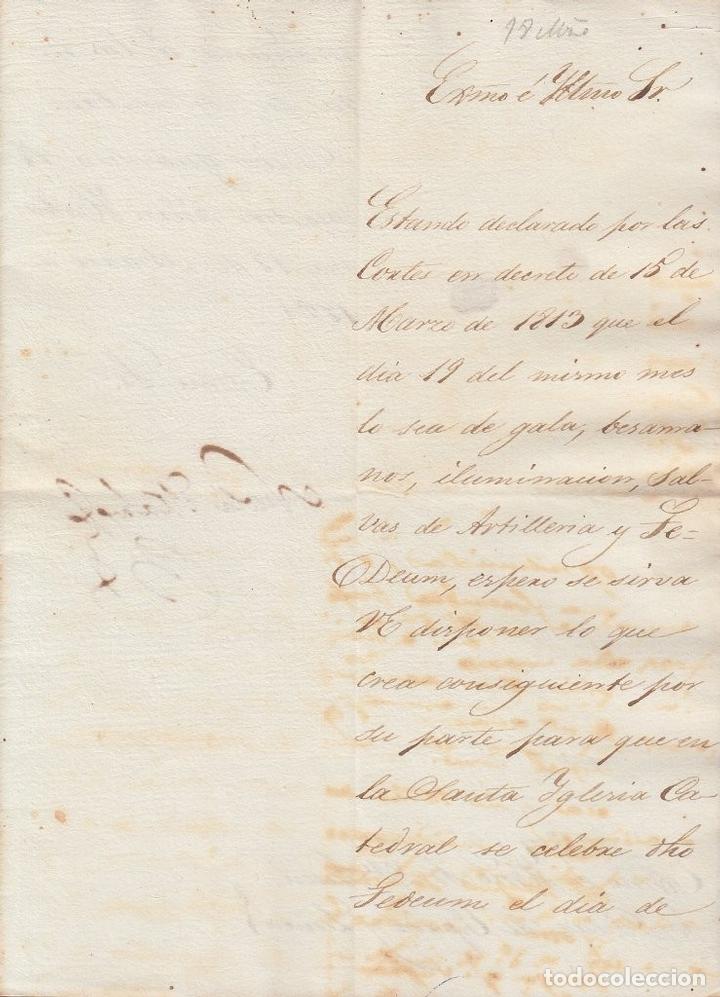 Exmo é Yltmo Sr.
Estando declarado por las
Cortes en decreto de 15 de
Marzo de 1813 que el
dia 19 del mismo mes
lo sea de gala, besama-
nos, iluminacion, sal-
vas de Artilleria y Te-
Deum, espero se sirva
VE disponer lo que
crea consiguiente por
su parte para que en
la Santa Yglesia Ca-
tedral se celebre dho
Tedeum el dia de
todocoleccion